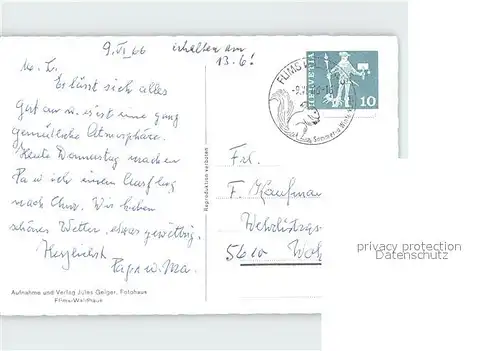 9. VI 66 erhalten am
13. 6!
M. L.
Es lässt sich alles
Gut an u. es ist eine ganz
gemütliche Atmosphäre.
Heute Donnerstag machen
Pa u ich einen Ausflug
nach Chur. Wir haben
schönes Wetter, etwas gewittrig.
Herzlichst
Papa u. Ma.
Aufnahme und Verlag Jules Geiger, Fotohaus
Flims-Waldhaus
Reproduktion verboten
FLIMS
HELVETIA
10
Frl.
F. Kaufman
5610 Woh
privacy protection
Datenschutz